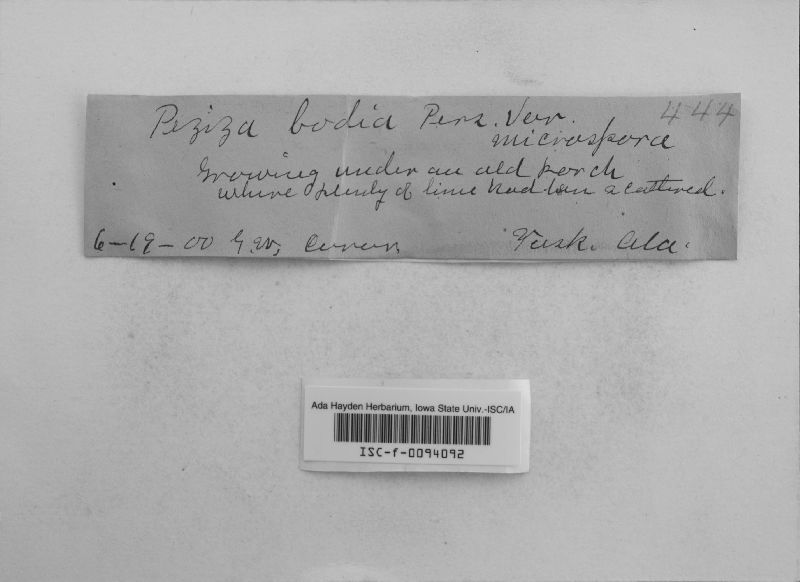 Peziza badia Pers. Var. 444
microspora
Growing under an old porch
where plenty of lime had been scattered.
6-19-00 G.W. Carver, Tusk. Ala.
Ada Hayden Herbarium, Iowa State Univ.-ISC/IA
ISC-f-0094092